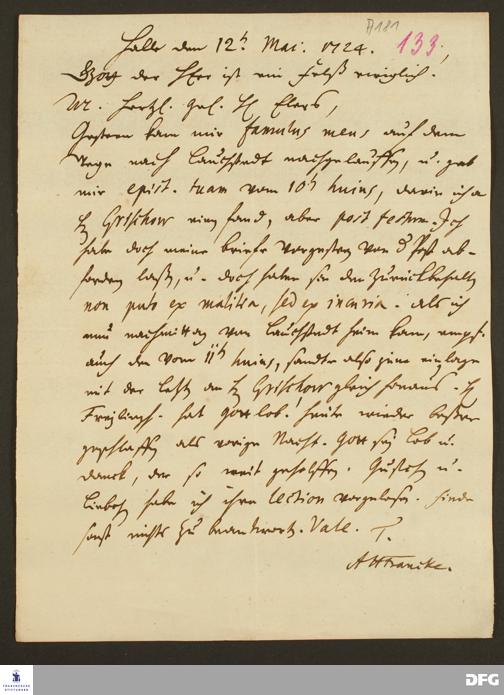 A 181
Halle den 12t Mai. 1724. 133.
Gott der Herr ist ein Felß ewiglich.
M. Hertzl. gel. H. Elers,
Gestern kam mir famulus meus auf dem
Wege nach Lauchstedt nachgelauffen, u. gab
mir epist. tuam vom 10t huius, darin ich a
H Grischow einen fand, aber post festum. Ich
habe doch meine briefe vorgestern von d Post ab-
fordern laßen, u. doch haben sie den zurückbehalten
non puto ex malitia, sed ex incuria. als ich
nun nachmittag von Lauchstedt heim kam, empf.
auch den vom 11t huius, sandte also eine einlage
mit der letzt an H Grischow gleich hinaus. H
Freylingh. hat gottlob. heute wieder beßer
geschlaffen als vorige Nacht. Gott sey lob u.
danck, der so weit geholffen. u.
habe ich ihre lection vorgelesen. finde
sonst nichts zu beantworten. Vale. T.
AHFrancke.
FRANCKESCHE STIFTUNGEN
DFG